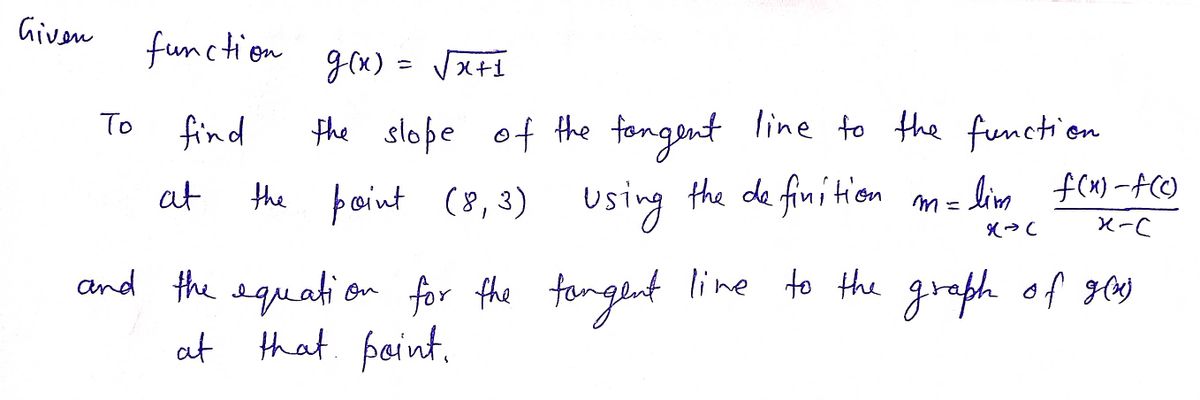 Given function g(x) = √x+1
To find the slope of the tangent line to the function
at the point (8,3) using the definition m = lim x→c f(x)-f(c) / x-c
and the equation for the tangent line to the graph of g(x)
at that. point.